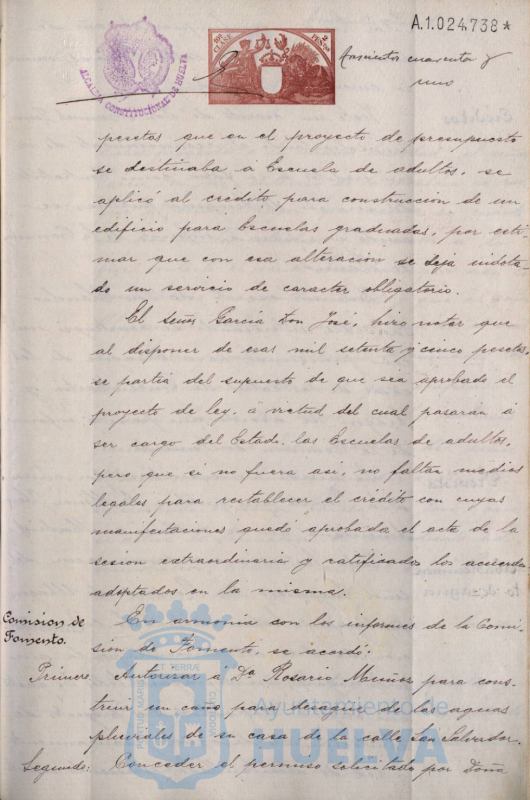 A.1.024.738*
10ª CLASE
2 PESETAS
ALCALDIA CONSTITUCIONAL DE HUELVA
cuarenta y
uno
pesetas que en el proyecto de presupuesto
se destinaba á Escuela de adultos, se
aplicó al crédito para construccion de un
edificio para Escuelas graduadas, por esti-
mar que con esa alteracion se deja indota-
do un servicio de caracter obligatorio.
El señor García Don José, hizo notar que
al disponer de esas mil setenta y cinco pesetas,
se partia del supuesto de que sea aprobado el
proyecto de ley, á virtud del cual pasarán á
ser cargo del Estado, las Escuelas de adultos,
pero que si no fuera asi, no faltan medios
legales para restablecer el crédito con cuyas
manifestaciones quedó aprobada el acta de la
sesion extraordinaria y ratificados los acuerdos
adoptados en la misma.
Comision de
Fomento.
En armonia con los informes de la Comi-
sion de Fomento, se acordó.
Primero. Autorizar á Dª Rosario Muñoz para cons-
truir un caño para desagüe de las aguas
pluviales de su casa de la calle San Salvador.
Segundo: Conceder el permiso solicitado por Doña
PORTUS MARIS ET TERRAE CUSTODIA
Ayuntamiento de
HUELVA